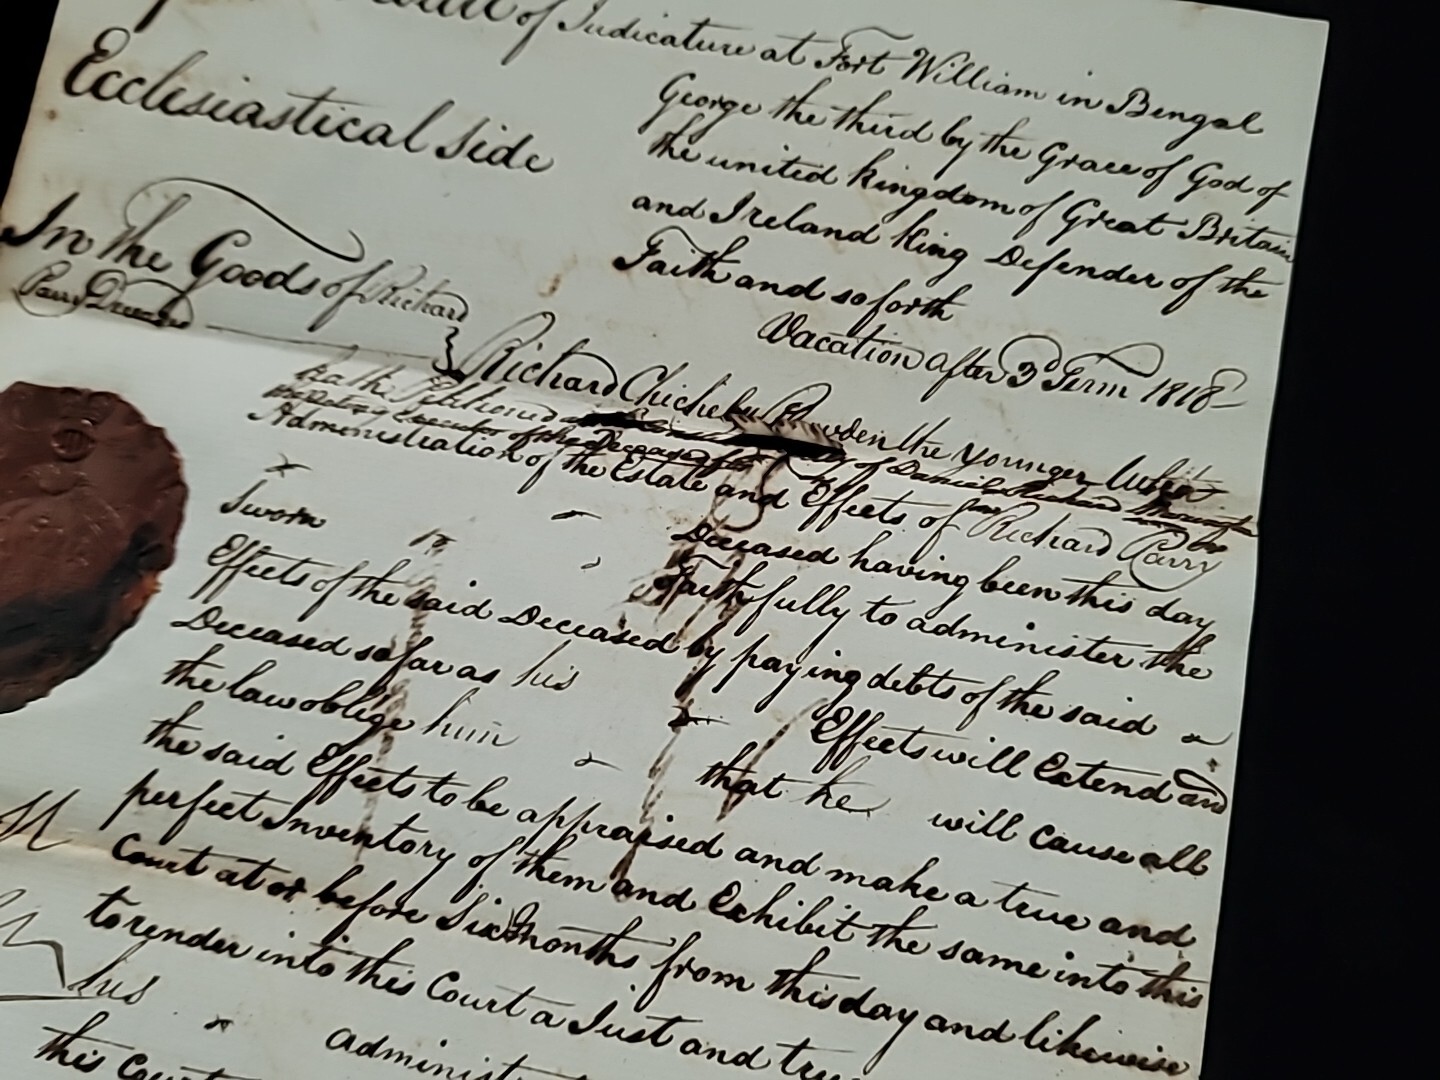 of Judicature at Fort William in Bengal
Ecclesiastical Side
George the third by the Grace of God of
the united Kingdom of Great Britain
and Ireland King Defender of the
Faith and so forth
In the Goods of Richard
Parry Deceased
Vacation after 3d Term 1818
Richard Chicheley Plowden the younger
hath Petitioned
of Daniel
Administration of the Estate and Effects of Richard Parry
Deceased having been this day
Sworn Faithfully to administer the
Effects of the said Deceased by paying debts of the said
Deceased so far as his Effects will Extend and
the law oblige him that he will cause all
the said Effects to be appraised and make a true and
perfect Inventory of them and Exhibit the same into this
Court at or before Six months from this day and likewise
to render into this Court a Just and true
his
administ
this Court